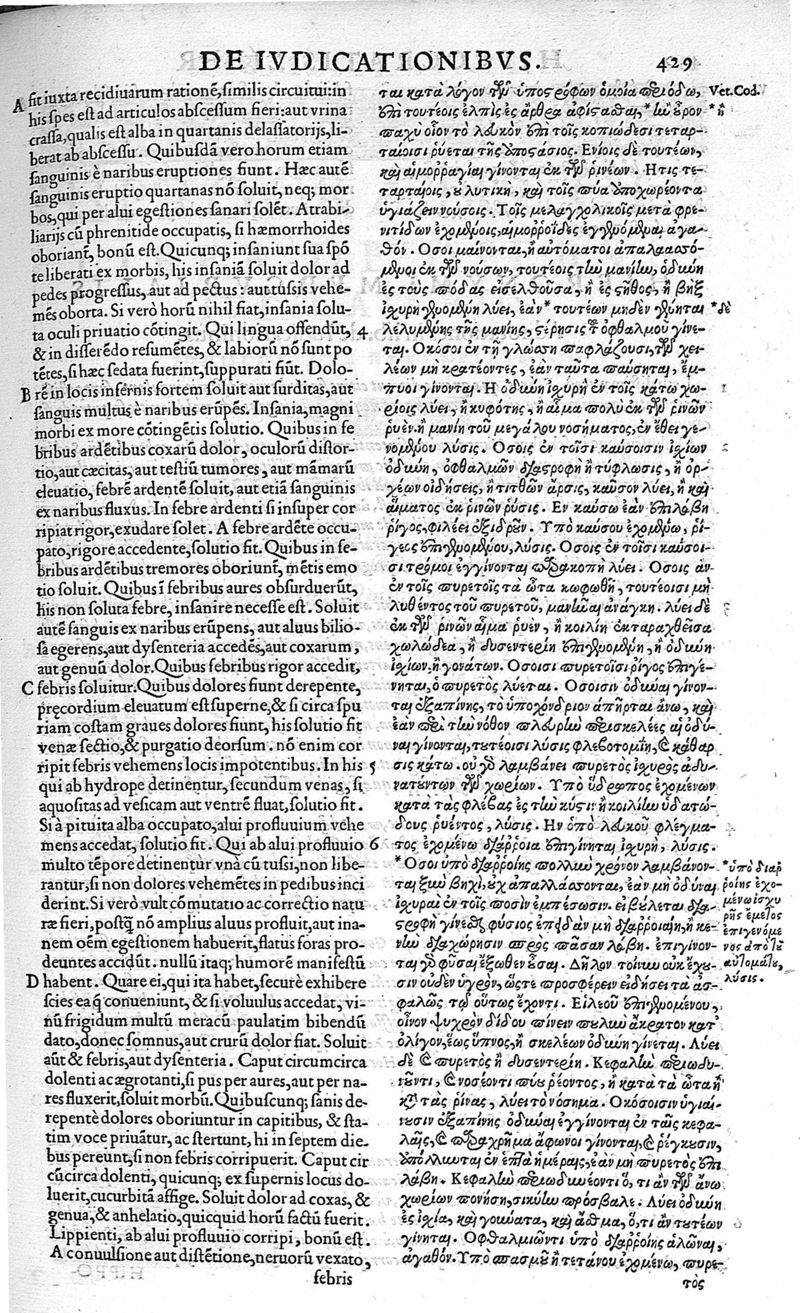 DE IVDICATIONIBVS. 429
A fit iuxta recidiuarum rationẽ, similis circuitui: in
his spes est ad articulos abscessum fieri: aut vrina
crassa, qualis est alba in quartanis delassatorijs, li-
berat ab abscessu. Quibusdã vero horum etiam
sanguinis è naribus eruptiones fiunt. Hæc autẽ
sanguinis eruptio quartanas nõ soluit, neq; mor
bos, qui per alui egestiones sanari solẽt. Atrabi-
liarijs cũ phrenitide occupatis, si hæmorrhoides
oboriant, bonũ est. Quicunq; insaniunt sua spõ
te liberati ex morbis, his insaniã soluit dolor ad
pedes progressus, aut ad pectus: aut tussis vehe-
mẽs oborta. Si verò horũ nihil fiat, insania solu-
ta oculi priuatio cõtingit. Qui lingua offendũt, 4
& in disserẽdo resumẽtes, & labiorũ nõ sunt po
tẽtes, si hæc sedata fuerint, suppurati fiũt. Dolo-
B rẽ in locis infernis fortem soluit aut surditas, aut
sanguis multus è naribus erũpẽs. Insania, magni
morbi ex more cõtingẽtis solutio. Quibus in fe
bribus ardẽtibus coxarũ dolor, oculorũ distor-
tio, aut cæcitas, aut testiũ tumores, aut mãmarũ
eleuatio, febrẽ ardentẽ soluit, aut etiã sanguinis
ex naribus fluxus. In febre ardenti si insuper cor
ripiat rigor, exudare solet. A febre ardẽte occu-
pato, rigore accedente, solutio fit. Quibus in fe-
bribus ardẽtibus tremores oboriunt, mẽtis emo
tio soluit. Quibus ĩ febribus aures obsurduerũt,
his non soluta febre, insanire necesse est. Soluit
autẽ sanguis ex naribus erũpens, aut aluus bilio-
sa egerens, aut dysenteria accedẽs, aut coxarum,
aut genuũ dolor. Quibus febribus rigor accedit,
C febris soluitur. Quibus dolores fiunt derepente,
pręcordium eleuatum est superne, & si circa spu
riam costam graues dolores fiunt, his solutio fit
venæ sectio, & purgatio deorsum. nõ enim cor
ripit febris vehemens locis impotentibus. In his 5
qui ab hydrope detinentur, secundum venas, si
aquositas ad vesicam aut ventrẽ fluat, solutio fit.
Si à pituita alba occupato, alui profluuium vehe
mens accedat, solutio fit. Qui ab alui profluuio 6
multo tẽpore detinentur vnà cũ tussi, non libe-
rantur, si non dolores vehemẽtes in pedibus inci
derint. Si verò vult cõmutatio ac correctio natu
ræ fieri, postq̃ nõ amplius aluus profluit, aut ina-
nem oẽm egestionem habuerit, flatus foras pro-
deuntes accidũt. nullũ itaq; humorẽ manifestũ
D habent. Quare ei, qui ita habet, securè exhibere
scies ea q̃ conueniunt, & si voluulus accedat, vi-
nũ frigidum multũ meracũ paulatim bibendũ
dato, donec somnus, aut crurũ dolor fiat. Soluit
aũt & febris, aut dysenteria. Caput circumcirca
dolenti ac ægrotanti, si pus per aures, aut per na-
res fluxerit, soluit morbũ. Quibuscunq; sanis de-
repentè dolores oboriuntur in capitibus, & sta-
tim voce priuãtur, ac stertunt, hi in septem die-
bus pereunt, si non febris corripuerit. Caput cir
cũcirca dolenti, quicunq; ex supernis locus do-
luerit, cucurbitã affige. Soluit dolor ad coxas, &
genua, & anhelatio, quicquid horũ factũ fuerit.
Lippienti, ab alui profluuio corripi, bonũ est.
A conuulsione aut distẽtione, neruorũ vexato,
febris
ται κατὰ λόγον τῶν ὑποστροφῶν ὁμοία περιόδῳ, Vet. Cod.
ἐπὶ τουτέοις ἐλπὶς ἐς ἄρθρα ἀφίστασθαι, *ἢν οὖρον *ἢ
παχὺ οἷον τὸ λευκὸν ἐπὶ τοῖς κοπιώδεσι τεταρ-
ταίοισι ῥύεται τῆς ἀποστάσιος. Ἐνίοις δὲ τουτέων,
καὶ αἱμορραγίαι γίνονται ἐκ τῶν ῥινέων. Ἥτις τε-
ταρταίοις, οὐ λυτικὴ, καὶ τοῖς πύα ὑποχωρέοντα
ὑγιάζειν νούσοις. Τοῖς μελαγχολικοῖς μετὰ φρε-
νιτίδων ἐχομένοις, αἱμορροΐδες ἐγγενόμεναι ἀγα-
θόν. Ὅσοι μαίνονται, ἢ αὐτόματοι ἀπαλλασσό-
μενοι ἐκ τῶν νούσων, τουτέοις τὴν μανίην, ὀδύνη
ἐς τοὺς πόδας εἰσελθοῦσα, ἢ ἐς στῆθος, ἢ βὴξ
ἰχυρὴ γενομένη λύει, ἐὰν* τουτέων μηδὲν γένηται *δὲ
λελυμένης τῆς μανίης, στέρησις τοῦ ὀφθαλμοῦ γίνε-
ται. Ὁκόσοι ἐν τῇ γλώσσῃ παφλάζουσι, τῶν χει-
λέων μὴ κρατέοντες, ἐὰν ταῦτα παύσηται, ἔμ-
πυοι γίνονται. Ἢ ὀδύνην ἰχυρὴν ἐν τοῖς κάτω χω-
ρίοις λύει, ἢ κυφότης, ἢ αἷμα πολὺ ἐκ τῶν ῥινῶν
ῥυέν. ἢ μανίη τοῦ μεγάλου νοσήματος, ἐν ἔθει γε-
νομένου λύσις. Ὅσοις ἐν τοῖσι καύσοισιν ἰχίων
ὀδύνη, ὀφθαλμῶν διαστροφὴ ἢ τύφλωσις, ἢ ὀρ-
χέων οἰδήσεις, ἢ τιτθῶν ἄρσις, καῦσον λύει, ἢ καὶ
αἵματος ἐκ ῥινῶν ῥύσις. Ἐν καύσῳ ἐὰν ἐπιλάβῃ
ῥῖγος, φιλέει ἐξιδροῦν. Ὑπὸ καύσου ἐχομένῳ, ῥί-
γεος ἐπιγενομένου, λύσις. Ὅσοις ἐν τοῖσι καύσοι-
σι τρόμοι ἐγγίνονται παρακοπὴ λύει. Ὅσοις ἂν
ἐν τοῖς πυρετοῖς τὰ ὦτα κωφωθῇ, τουτέοισι μὴ
λυθέντος τοῦ πυρετοῦ, μανῆναι ἀνάγκη. λύει δὲ
ἐκ τῶν ῥινῶν αἷμα ῥυὲν, ἢ κοιλίη ἐκταραχθεῖσα
χολώδεα, ἢ δυσεντερίη ἐπιγενομένη, ἢ ὀδύνη
ἰχίων, ἢ γονάτων. Ὅσοισι πυρετοῖσι ῥῖγος ἐπιγέ-
νηται, ὁ πυρετὸς λύεται. Ὅσοισιν ὀδύναι γίνον-
ται ἐξαπίνης, τὸ ὑποχόνδριον ἀπῆρται ἄνω, καὶ
ἐὰν περὶ τὴν νόθον πλευρὴν περισκελέες αἱ ὀδύ-
ναι γίνονται, τουτέοισι λύσις φλεβοτομίη, καὶ κάθαρ
σις κάτω. οὐ γὸ λαμβάνει πυρετὸς ἰχυρὸς ἀδυ-
νατεόντων τῶν χωρίων. Ὑπὸ ὕδρωπος ἐχομένων
κατὰ τὰς φλέβας ἐς τὴν κύστιν ἢ κοιλίην ὑδατώ-
δους ῥυέντος, λύσις. Ἢν ὑπὸ λευκοῦ φλέγμα-
τος ἐχομένῳ διάρροια ἐπιγίνεται ἰχυρὴ, λύσις.
*Ὅσοι ὑπὸ διαρροίης πολλὺν χρόνον λαμβάνον-
ται ξὺν βηχὶ, οὐχ ἀπαλλάσσονται, ἐὰν μὴ ὀδύναι
ἰχυραὶ ἐν τοῖς ποσὶν ἐμπέσωσιν. εἰ βούλεται δια-
στροφὴ γίνεσθαι φύσιος ἐπειδὰν μὴ διαρροιαίη, ἢ κε-
νὴν διαχώρησιν πρὸς πᾶσαν λάβῃ. ἐπιγίνον-
ται γὸ φῦσαι ἔξωθεν οὖσαι. Δῆλον τοίνυν οὐκ ἔχου-
σιν οὐδὲν ὑγρὸν, ὥστε προσφέρειν εἰδήσει τὰ ἀσ-
φαλῶς τῷ οὕτως ἔχοντι. Εἰλεοῦ ἐπιγενομένου,
οἶνον ψυχρὸν δίδου πίνειν πουλὺν ἄκρατον κατ᾽
ὀλίγον, ἕως ὕπνος, ἢ σκελέων ὀδύνη γίνεται. Λύει
δὲ καὶ πυρετὸς ἢ δυσεντερίη. Κεφαλὴν περιωδυ-
νῶντι, καὶ νοσέοντι πύου ῥέοντος, ἢ κατὰ τὰ ὦτα ἢ
κατὰ τὰς ῥῖνας, λύει τὸ νόσημα. Ὁκόσοισιν ὑγιαί-
νουσιν ἐξαπίνης ὀδύναι ἐγγίνονται ἐν ταῖς κεφα-
λαῖς, καὶ παραχρῆμα ἄφωνοι γίνονται, καὶ ῥέγκουσιν,
ἀπόλλυνται ἐν ἑπτὰ ἡμέραις, ἐὰν μὴ πυρετὸς ἐπι-
λάβῃ. Κεφαλὴν περιωδυνέοντι ὅ, τι ἂν τῶν ἄνω
χωρίων πονήσῃ, σικύην πρόσβαλε. Λύει ὀδύνη
ἐς ἰχία, καὶ γούνατα, καὶ ἄσθμα, ὅ, τι ἂν τουτέων
γένηται. Ὀφθαλμιῶντι ὑπὸ διαρροίης ἁλῶναι,
ἀγαθόν. Ὑπὸ σπασμοῦ ἢ τετάνου ἐχομένῳ, πυρε-
τὸς
*ὑπὸ διαρ
ροίης ἐχο-
μένῳ ἰσχυ
ρῆς ἔμετος
ἐπιγενόμε
νος ἀπὸ τοῦ
αὐτομάτου,
λύσις.